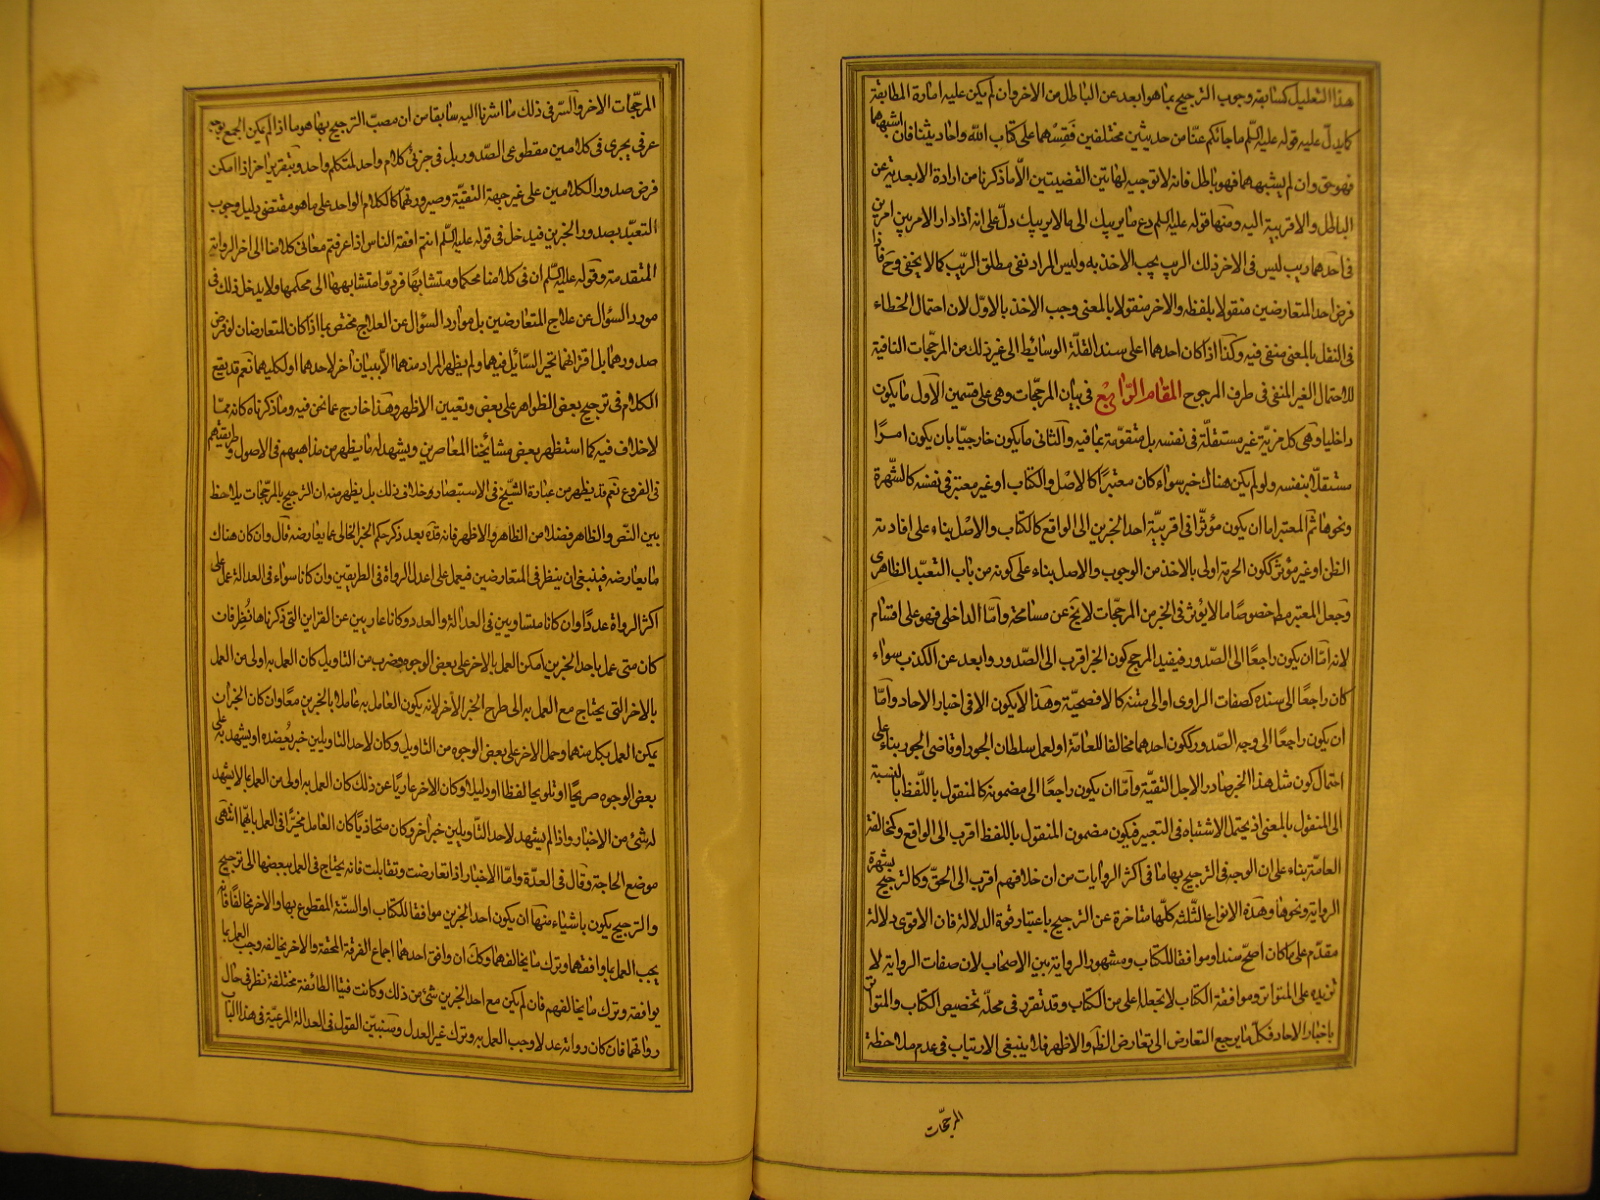 هذا التعليل كسابقه وجوب الترجيح بما هو ابعد عن الباطل من الاخر وان لم يكن عليه امارة المطابقة
كما يدلّ عليه قوله عليه السلم ما جائكم عنّا من حديثين مختلفين فقسهما على كتاب الله واحاديثنا فان اشبههما
فهو حق وان لم يشبههما فهو باطل فانه لا توجيه لهاتين القضيتين الّا ما ذكرنا من ارادة الابعدية عن
الباطل والاقربية اليه ومنها قوله عليه السلم دع ما يريبك الى ما لا يريبك دلّ على انه اذا دار الامر بين امرين
فى احدهما ريب ليس فى الاخر ذلك الريب يجب الاخذ به وليس المراد نفى مطلق الرّيب كما لا يخفى وح فاذا
فرض احد المتعارضين منقولا بلفظه والاخر منقولا بالمعنى وجب الاخذ بالاوّل لان احتمال الخطاء
فى النقل بالمعنى منفى فيه وكذا اذا كان احدهما اعلى سندا لقلّة الوسائط الى غير ذلك من المرجّحات النافية
للاحتمال الغير المنفى فى طرف المرجوح المقام الرّابع فى بيان المرجّحات وهى على قسمين الاول ما يكون
داخليا وهى كل مزيّة غير مستقلّة فى نفسه بل متقوّمة بما فيه والثانى ما يكون خارجيّا بان يكون امرًا
مستقلّا بنفسه ولو لم يكن هناك خبر سواء كان معتبرًا كالاصل والكتاب او غير معتبر فى نفسه كالشّهرة
ونحوها ثم المعتبر اما ان يكون مؤثّرا فى اقربيّة احد الخبرين الى الواقع كالكتاب والاصل بناء على افادته
الظن او غير مؤثر ككون الحرمة اولى بالاخذ من الوجوب والاصل بناء على كونه من باب التعبّد الظاهرى
وجعل المعتبر مط خصوصًا ما لا يؤثر فى الخبر من المرجّحات لا يخ عن مسامحة وامّا الداخلى فهو على اقسام
لانه امّا ان يكون راجعًا الى الصّدور فيفيد المرجح كون الخبر اقرب الى الصّدور وابعد عن الكذب سواء
كان راجعًا الى سنده كصفات الراوى او الى متنه كالافصحيّة وهذا لا يكون الا فى اخبار الاحاد وامّا
ان يكون راجعًا الى وجه الصّدور ككون احدهما مخالفا للعامّة او لعمل سلطان الجور او قاضى الجور بناء على
احتمال كون مثل هذا الخبر صادر الاجل التقيّة وامّا ان يكون راجعًا الى مضمونه كالمنقول باللّفظ بالنسبة
الى المنقول بالمعنى اذ يحتمل الاشتباه فى التعبير فيكون مضمون المنقول باللفظ اقرب الى الواقع وكمخالفة
العامّة بناء على ان الوجه فى الترجيح بها ما فى اكثر الروايات من ان خلافهم اقرب الى الحقّ وكالترجيح بشهرة
الرواية ونحوها وهذه الانواع الثّلثه كلّها متاخرة عن الترجيح باعتبار قوة الدلالة فان الاقوى دلالة
مقدّم على ما كان اصحّ سندا وموافقا للكتاب ومشهور الرواية بين الاصحاب لان صفات الرواية لا
تزيده على المتواتر وموافقة الكتاب لا تجعله اعلى من الكتاب وقد تقرر فى محلّه تخصيص الكتاب والمتواتر
باخبار الاحاد فكلّ ما يرجع التعارض الى تعارض الظّ والاظهر فلا ينبغى الارتياب فى عدم ملاحظة
المرجّحات
المرجّحات الاخر والسّر فى ذلك ما اشرنا اليه سابقا من ان مصبّ الترجيح بها هو ما اذا لم يكن الجمع بوجه
عرفى يجرى فى كلامين مقطوعى الصّدور بل فى جزئى كلام واحد لمتكلم واحد وبتقرير اخر اذا امكن
فرض صدور الكلامين على غير جهة التقيّة وصيرورتهما كالكلام الواحد على ما هو مقتضى دليل وجوب
التعبّد بصدور الخبرين فيدخل فى قوله عليه السّلم انتم افقه الناس اذا عرفتم معانى كلامنا الى اخر الرواية
المتقدمة وقوله عليه السّلم ان فى كلامنا محكما ومتشابهًا فردّوا متشابهها الى محكمها ولا يدخل ذلك فى
مورد السؤال عن علاج المتعارضين بل موارد السؤال عن العلاج مختص بما اذا كان المتعارضان لو فرض
صدورهما بل اقترانهما تحير السّائل فيهما ولم يظهر المراد منهما الّا ببيان اخر لاحدهما او لكليهما نعم قد يقع
الكلام فى ترجيح بعض الظواهر على بعض وتعيين الاظهر وهذا خارج عما نحن فيه وما ذكرناه كانه ممّا
لا خلاف فيه كما استظهر بعض مشائخنا المعاصرين ويشهد له ما يظهر من مذاهبهم فى الاصول وطريقتهم
فى الفروع نعم قد يظهر من عبارة الشّيخ فى الاستبصار خلاف ذلك بل يظهر منه ان الترجيح بالمرجّحات يلاحظ
بين النّص والظاهر فضلا من الظاهر والاظهر فانه قده بعد ذكر حكم الخبر الخالى عما يعارضه قال وان كان هناك
ما يعارضه فينبغى ان ينظر فى المتعارضين فيعمل على اعدل الرواة فى الطريقين وان كانا سواء فى العدالة عمل على
اكثر الرواة عددًا وان كانا متساويين فى العدالة والعدد وكانا عاريين عن القراين التى ذكرناها نُظِر فان
كان متى عمل باحد الخبرين امكن العمل بالاخر على بعض الوجوه وضرب من التاويل كان العمل به اولى من العمل
بالاخر التى يحتاج مع العمل به الى طرح الخبر الآخر لانه يكون العامل به عاملا بالخبرين معًا وان كان الخبران
يمكن العمل بكل منهما وحمل الاخر على بعض الوجوه من التاويل وكان لاحد التاويلين خبر يُعضده او يشهد به على
بعض الوجوه صريحًا او تلويحا لفظا او دليلا وكان الاخر عاريًا عن ذلك كان العمل به اولى من العمل بما لا يشهد
له شئ من الاخبار واذا لم يشهد لاحد التّاويلين خبر اخر وكان متحاذيًا كان العامل مخيّرًا فى العمل بايّهما انتهى
موضع الحاجة وقال فى العدّة وامّا الاخبار اذا تعارضت وتقابلت فانه يحتاج فى العمل ببعضها الى ترجيح
والترجيح يكون باشياء منها ان يكون احد الخبرين موافقا للكتاب او السنّة المقطوع بها والاخر مخالفًا فانّه
يجب العمل بما وافقهما وترك ما يخالفهما وكك ان وافق احدهما اجماع الفرقة المحقة والاخر يخالفه وجب العمل بما
يوافقه وترك ما يخالفهم فان لم يكن مع احد الخبرين شئ من ذلك وكانت فتيا الطائفة مختلفة نظر فى حال
رواتهما فان كان رواته عدلا وجب العمل به وترك غير العدل وسنبيّن القول فى العدالة المرعيّة فى هذا الباب